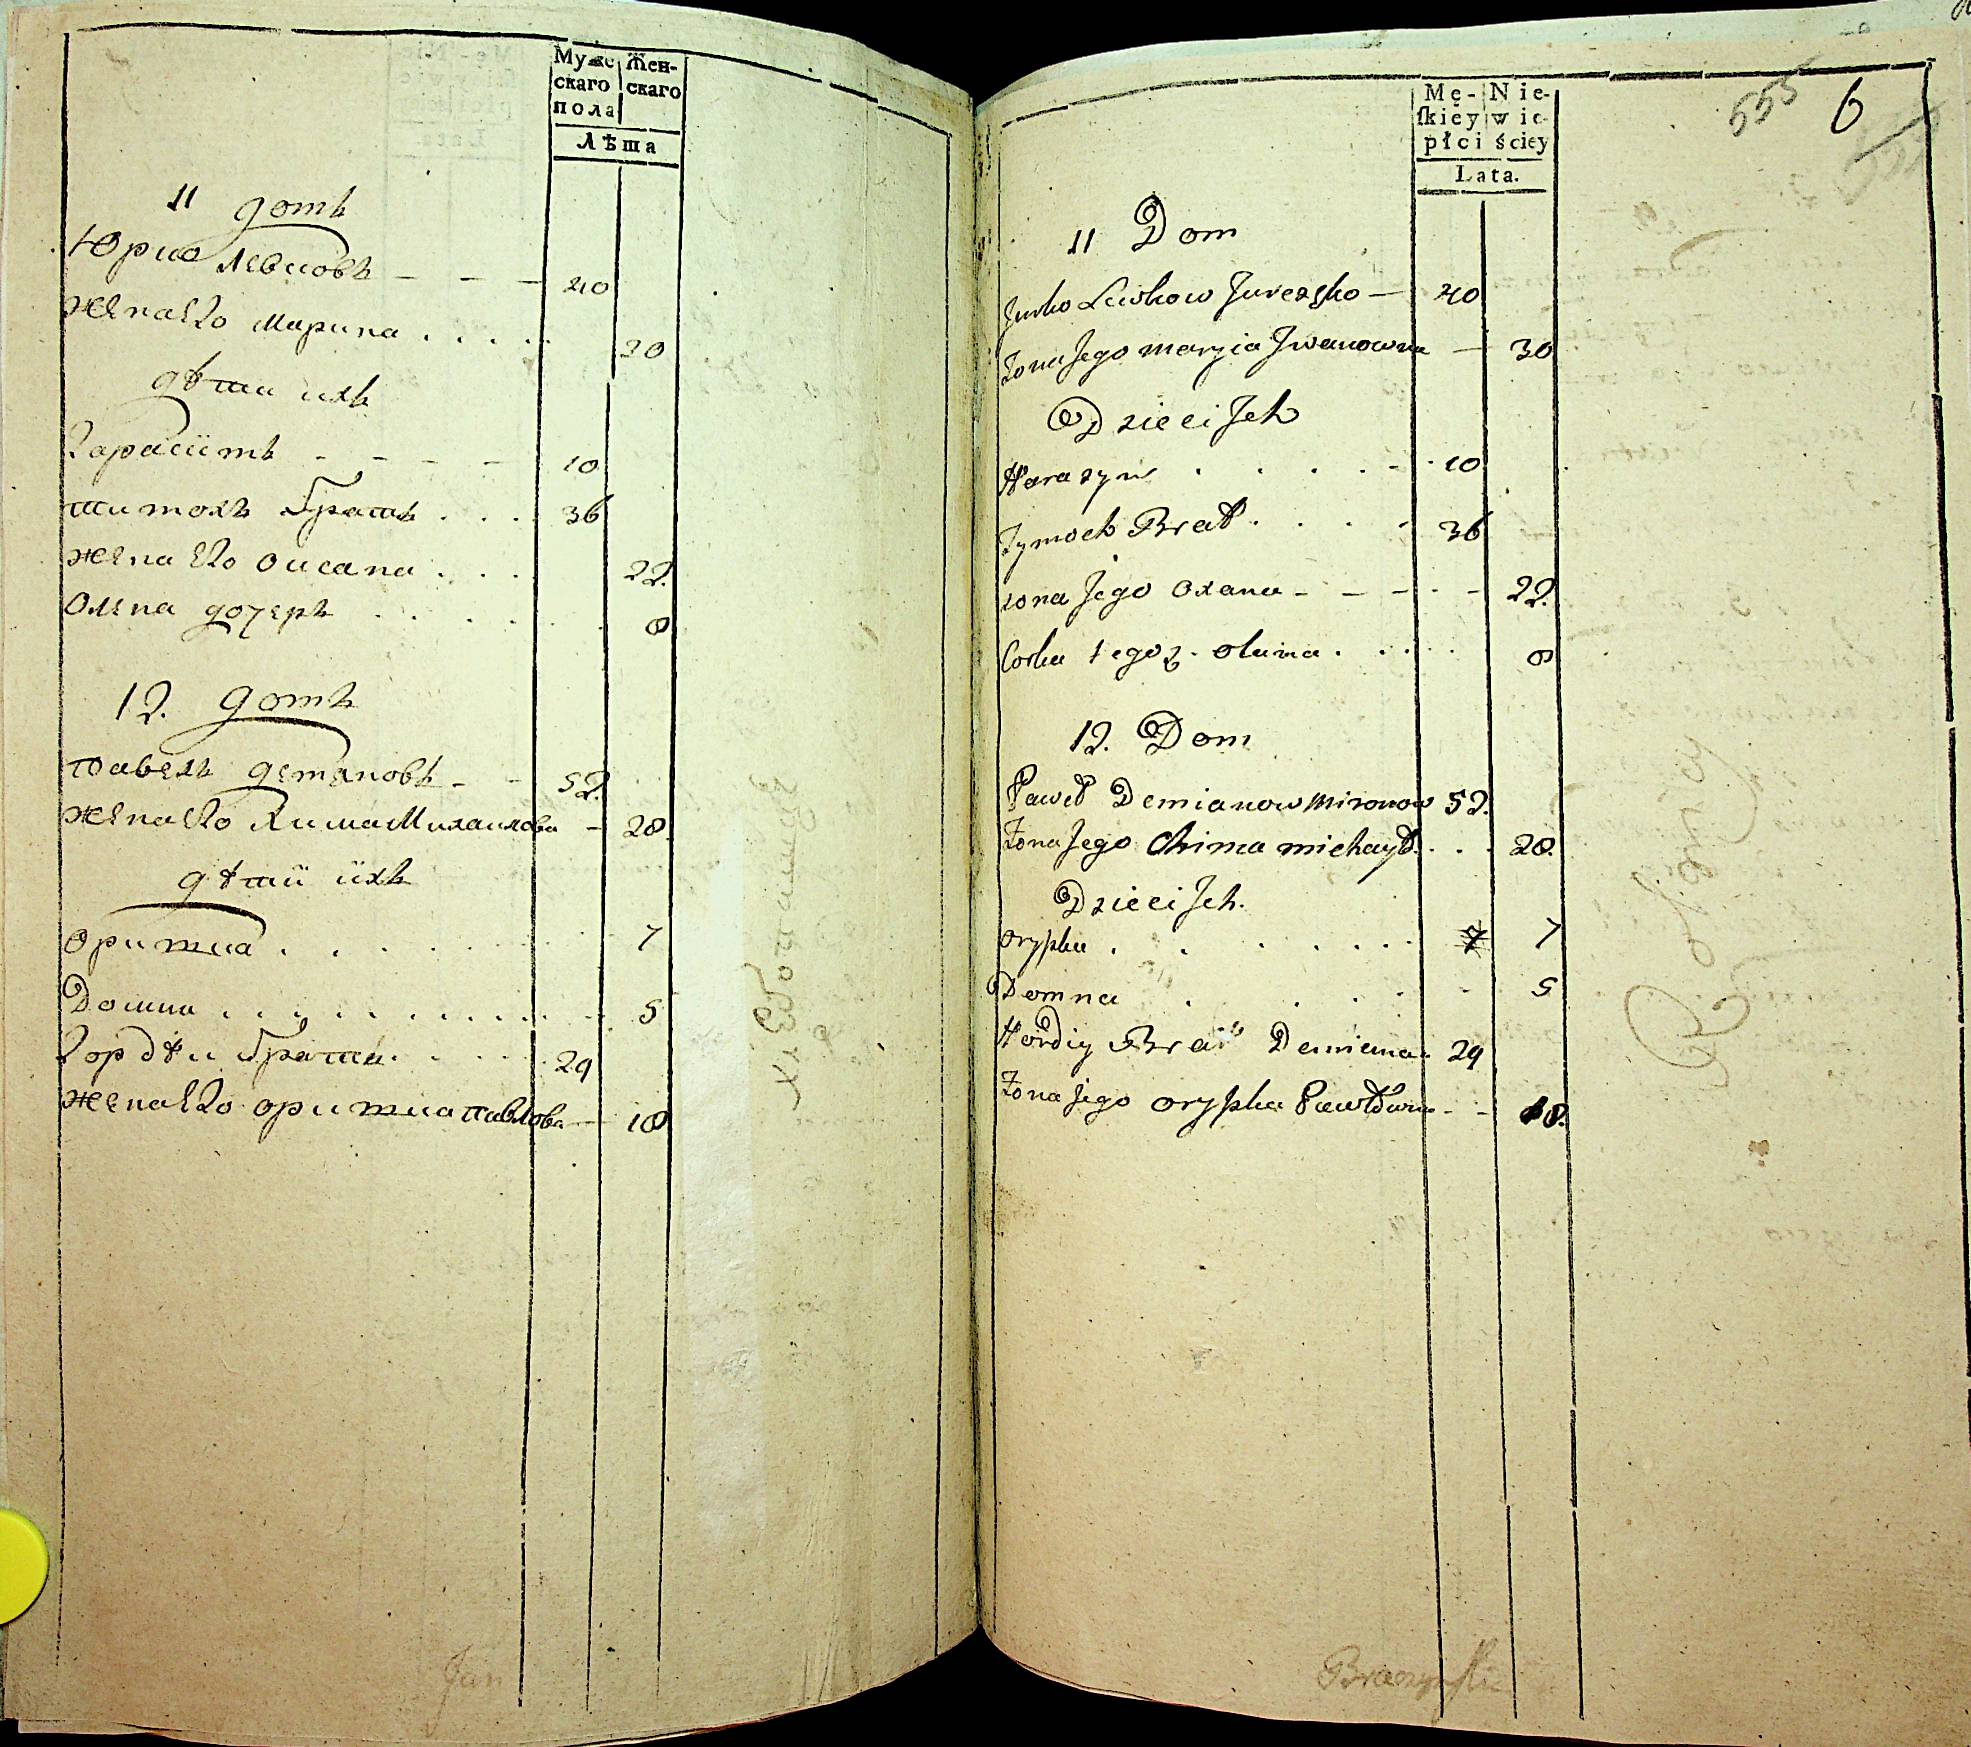 Муже
скаго
пола
Жен-
скаго
Лѣта
11 домъ
Юрко Левковъ — — — 40
жена его Марина . . . . . 30
дѣти ихъ
Гарасимъ - - - - 10
тимохъ братъ . . . 36
жена его Оксана . . . 22.
Олена дочеръ . . . . . 8
12. домъ
павелъ демяновъ - - 52.
жена его Хима Михаилова — 28
дѣтіи ихъ
оришка . . . . . . . 7
Домна . . . . . . . . . . 5
Гордѣи братъ . . . . 29
жена его оришка павлова — 18
Jan
555
6
Mę-
skiey
płci
Nie-
wie-
ściey
Lata.
11 Dom
Jurko Lewkow Jurczsko — 40
Żona Jego maryia Jwanowna — 30
Dzieci Jch
Harazym . . . . . . 10
Tymoch Brat . . . . 36
żona Jego Oxana - - - - - 22.
Corka tegoz. olena . . . . 8
12. Dom
Paweł Demianow Mironow 52.
Żona Jego Chima michaył. . . . 28.
Dzieci Jch.
oryszka . . . . . . . 7
Domna . . . . . . 5
Hordiy Brat Demiena - 29
Żona Jego oryszka Pawłowna - - 18.